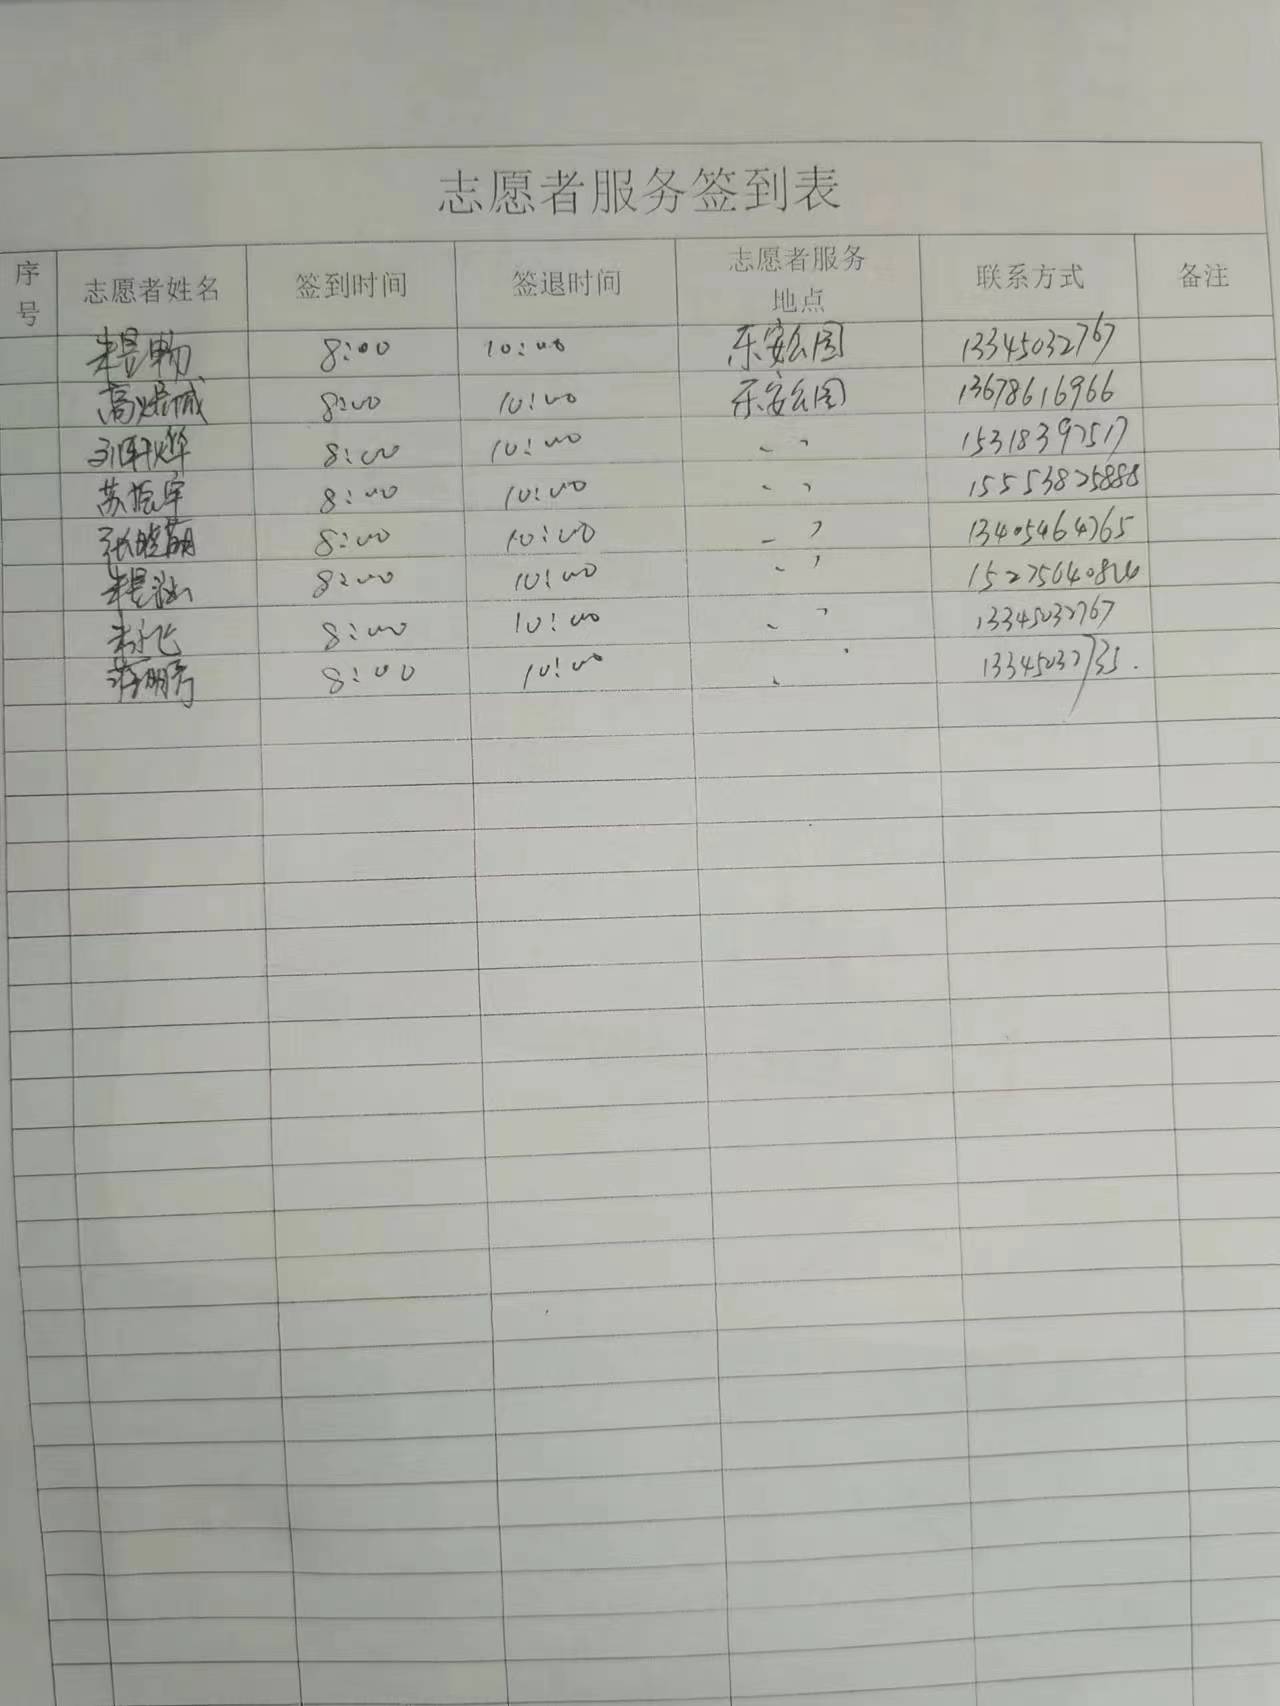 志愿者服务签到表
序号 志愿者姓名 签到时间 签退时间 志愿者服务地点 联系方式 备注
8:00 10:00 乐安公园 13345032767
8:00 10:00 乐安公园 13678616966
8:00 10:00 〃 15318397517
苏振宇 8:00 10:00 〃 15553825888
张晓萌 8:00 10:00 〃 13405464765
8:00 10:00 〃
朱永飞 8:00 10:00 〃 13345032767
8:00 10:00 〃 13345032735.